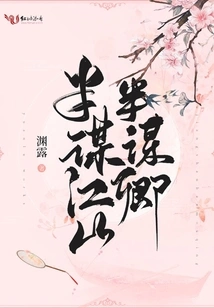 半谋江山
半谋卿
渊露
著